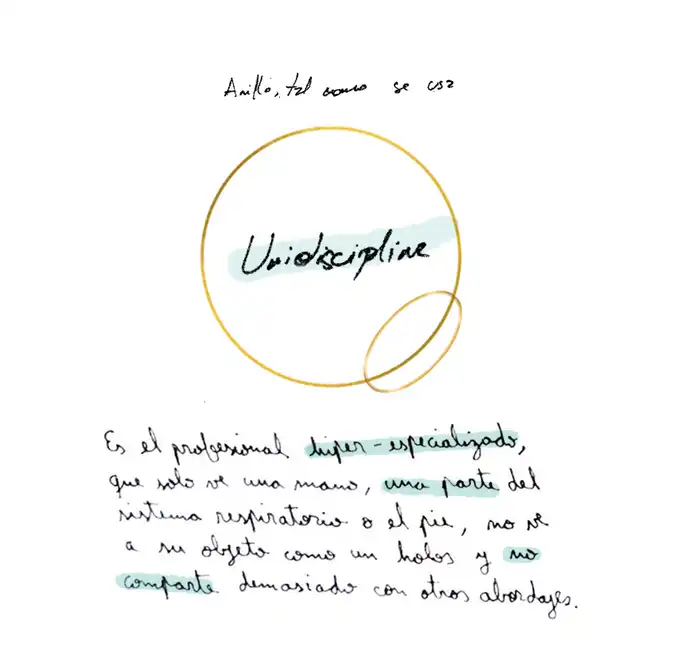 Anillo, tal como se usa
Unidiscipline
Es el profesional hiper-especializado,
que solo ve una mano, una parte del
sistema respiratorio o el pie, no ve
a su objeto como un holos y no
comparte demasiado con otros abordajes.